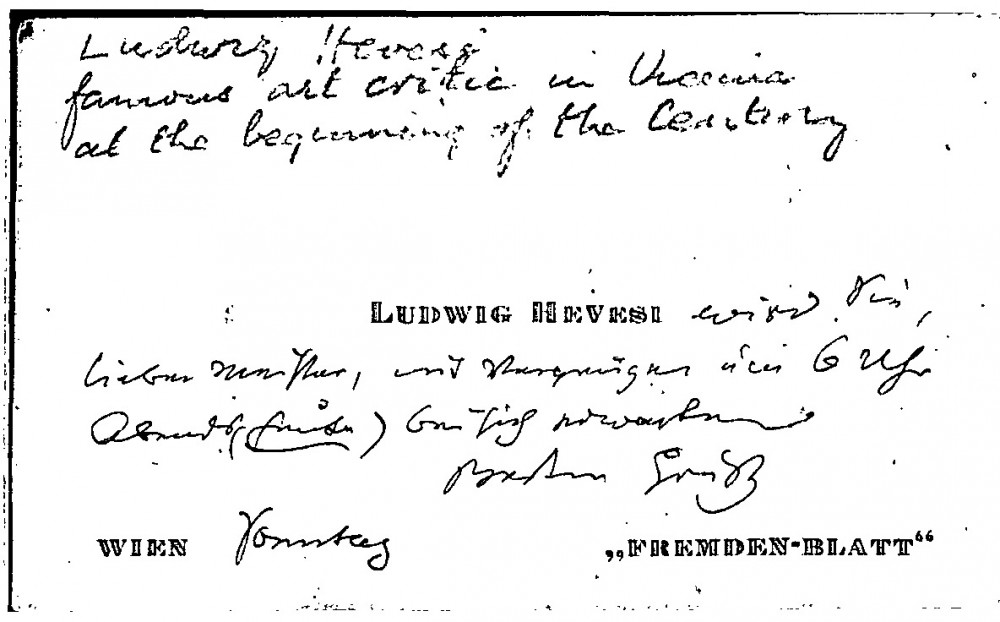 Ludwig Hevesi
famous art critic in Vienna
at the beginning of the Century
LUDWIG HEVESI wird Sie,
lieber Meister, mit Vergnügen um 6 Uhr
Abends (heute) bei sich erwarten
Besten Gruß
WIEN Sonntag „FREMDEN-BLATT“